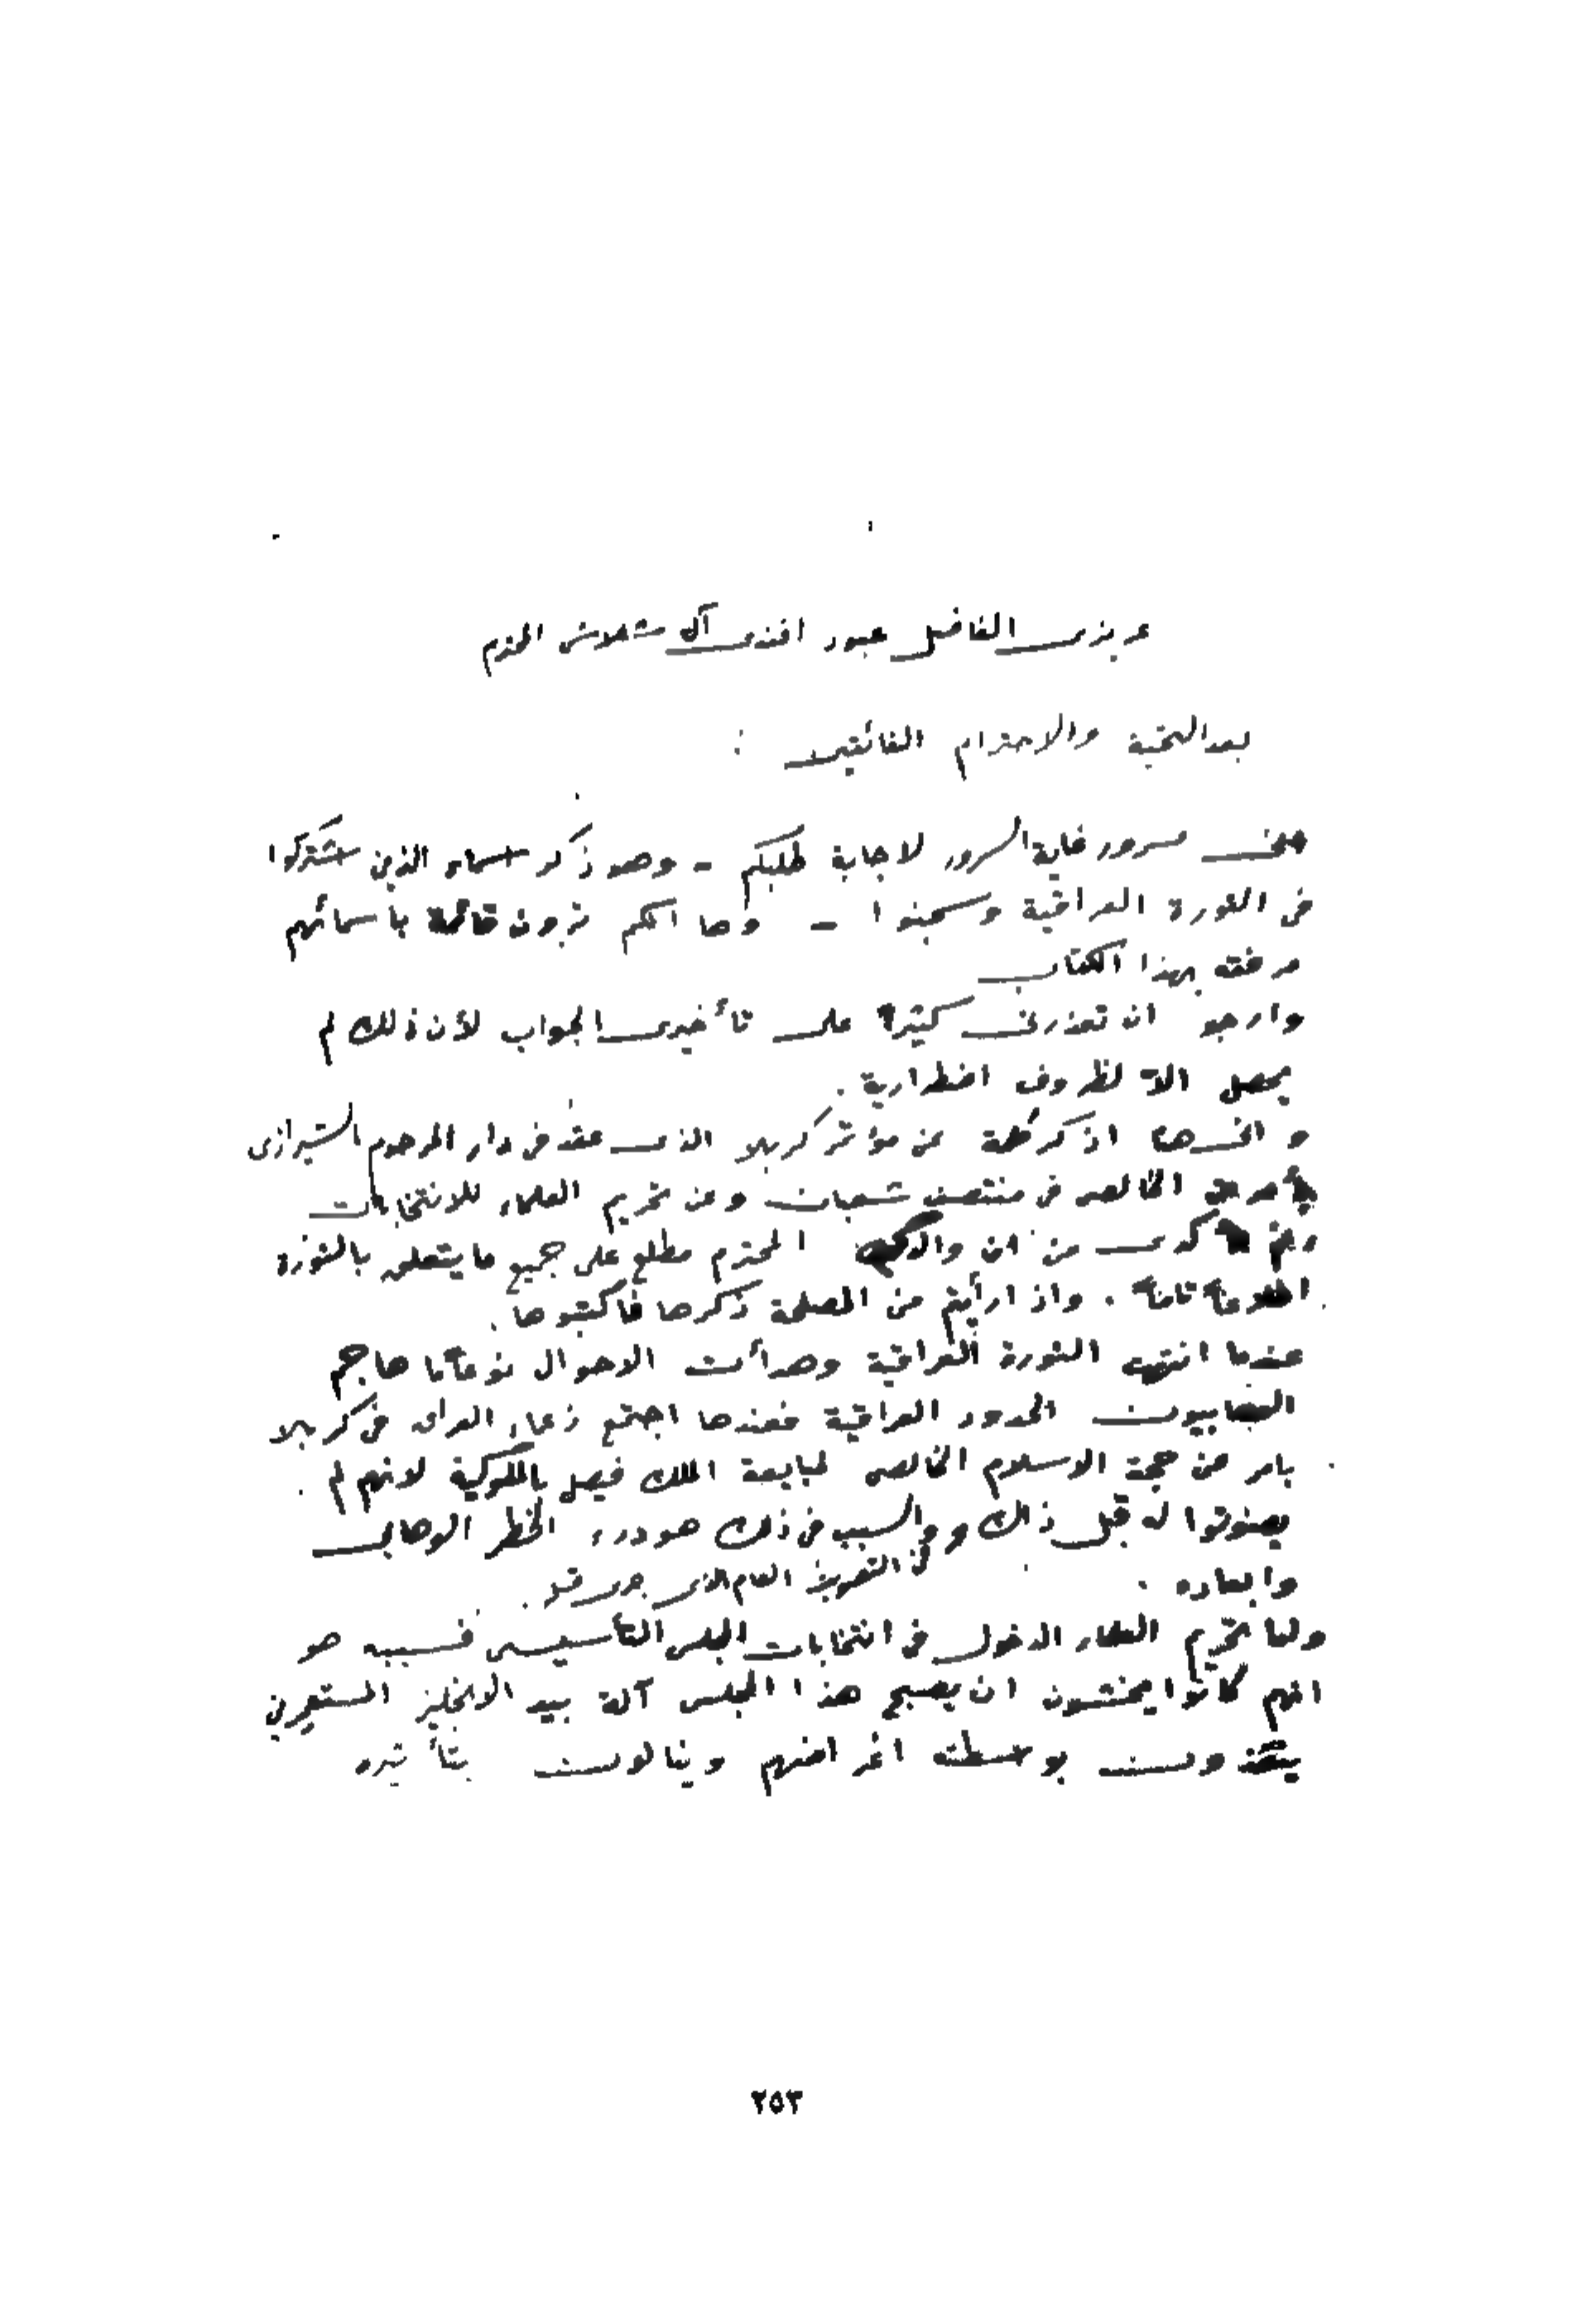 عزيزي الفاضل عبود افندي آل مشعلاوش المحترم
بعد التحية والاحترام الفائقين :
مسرور غاية السرور لاجابة طلبكم - وهو ذكر اسماء الذين اشتركوا
في الثورة العراقية وسجنوا - وها انكم ترون قائمة باسمائهم
مرفقة بهذا الكتاب
وارجو ان تعذروني كثيرا على تأخيري الجواب لأن ذلك لم
يحصل الا لظروف اضطرارية .
اذكر كلمة عن مؤتمر كربلا الذي عقد في دار المرحوم الشيرازي
الخالصي في منتصف شعبان وعن تحريم العلماء للانتخابات
رغم من ان والدكم المحترم مطلع على جميع ما يتعلق بالثورة
اطلاعاً تاماً . واذا رأيتم من المصلحة ذكرها فاكتبوها .
عندما انتهت الثورة العراقية وهدأت الاحوال نوعاً ما هاجم
الحدود العراقية فعندها اجتمع زعماء العراق في كربلا
بامر من حجة الاسلام الخالصي لمبايعة الملك فيصل بالملوكية لانهم لم
يصوتوا له قبل ذاك والسبب في ذلك هو درء الخطر الوهابي
في التصويت العام الذي جرى
وابعاده .
واما تحريم العلماء الدخول في انتخابات المجلس التأسيسي فسببه هو
انهم كانوا يخشون ان يصبح هذا المجلس آلة بيد الانجليز المستعمرين
ينفذون بوسطته اغراضهم وينالون بتأثيره
٢٥٣